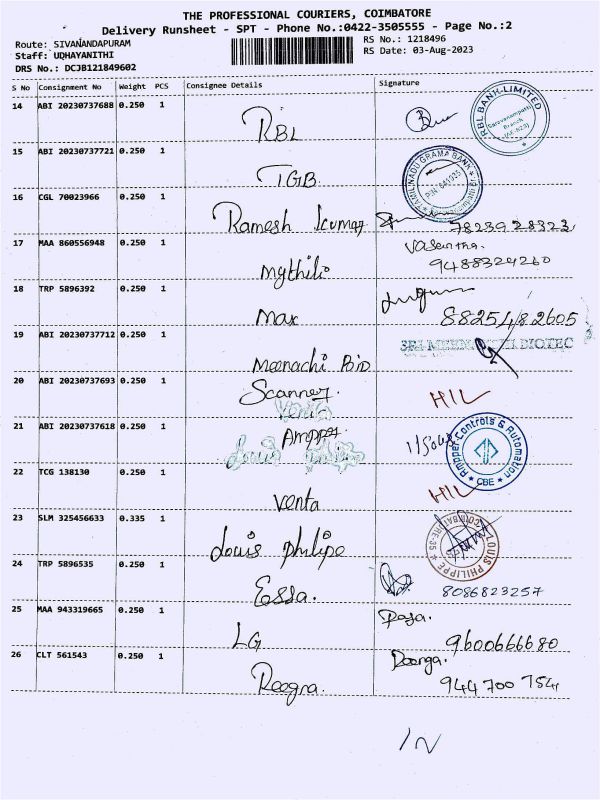 THE PROFESSIONAL COURIERS, COIMBATORE
Delivery Runsheet - SPT - Phone No.:0422-3505555 - Page No.:2
Route: SIVANANDAPURAM
RS No.: 1218496
Staff: UDHAYANITHI
RS Date: 03-Aug-2023
DRS No.: DCJB121849602
S No Consignment No Weight PCS Consignee Details Signature
14 ABI 20230737688 0.250 1 RBL
RBL BANK-LIMITED
Saravanampatti
Branch
15 ABI 20230737721 0.250 1 TGB
TAMILNADU GRAMA BANK
PIN 641035
16 CGL 70023966 0.250 1 Ramesh Kumar 7823928323
17 MAA 860556948 0.250 1 Mythili Vasantha.
9488324260
18 TRP 5896392 0.250 1 Max 8825482605
19 ABI 20230737712 0.250 1 Meenachi Bio
20 ABI 20230737693 0.250 1 Scanner. HIL
Venta
21 ABI 20230737618 0.250 1 Ampper
Ampper Controls & Automation
CBE
Louis Philipe
22 TCG 138130 0.250 1 Venta HIL
23 SLM 325456633 0.335 1 Louis Philipe
LOUIS PHILIPPE
24 TRP 5896535 0.250 1 Essa. 8086823257
25 MAA 943319665 0.250 1 LG Roja.
9600666680
26 CLT 561543 0.250 1 Reegna.
944700754